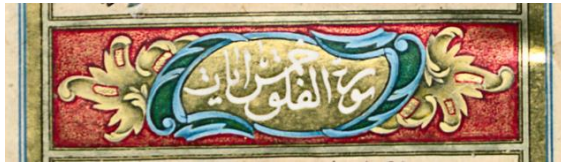 سورة الفلق خمس ايات